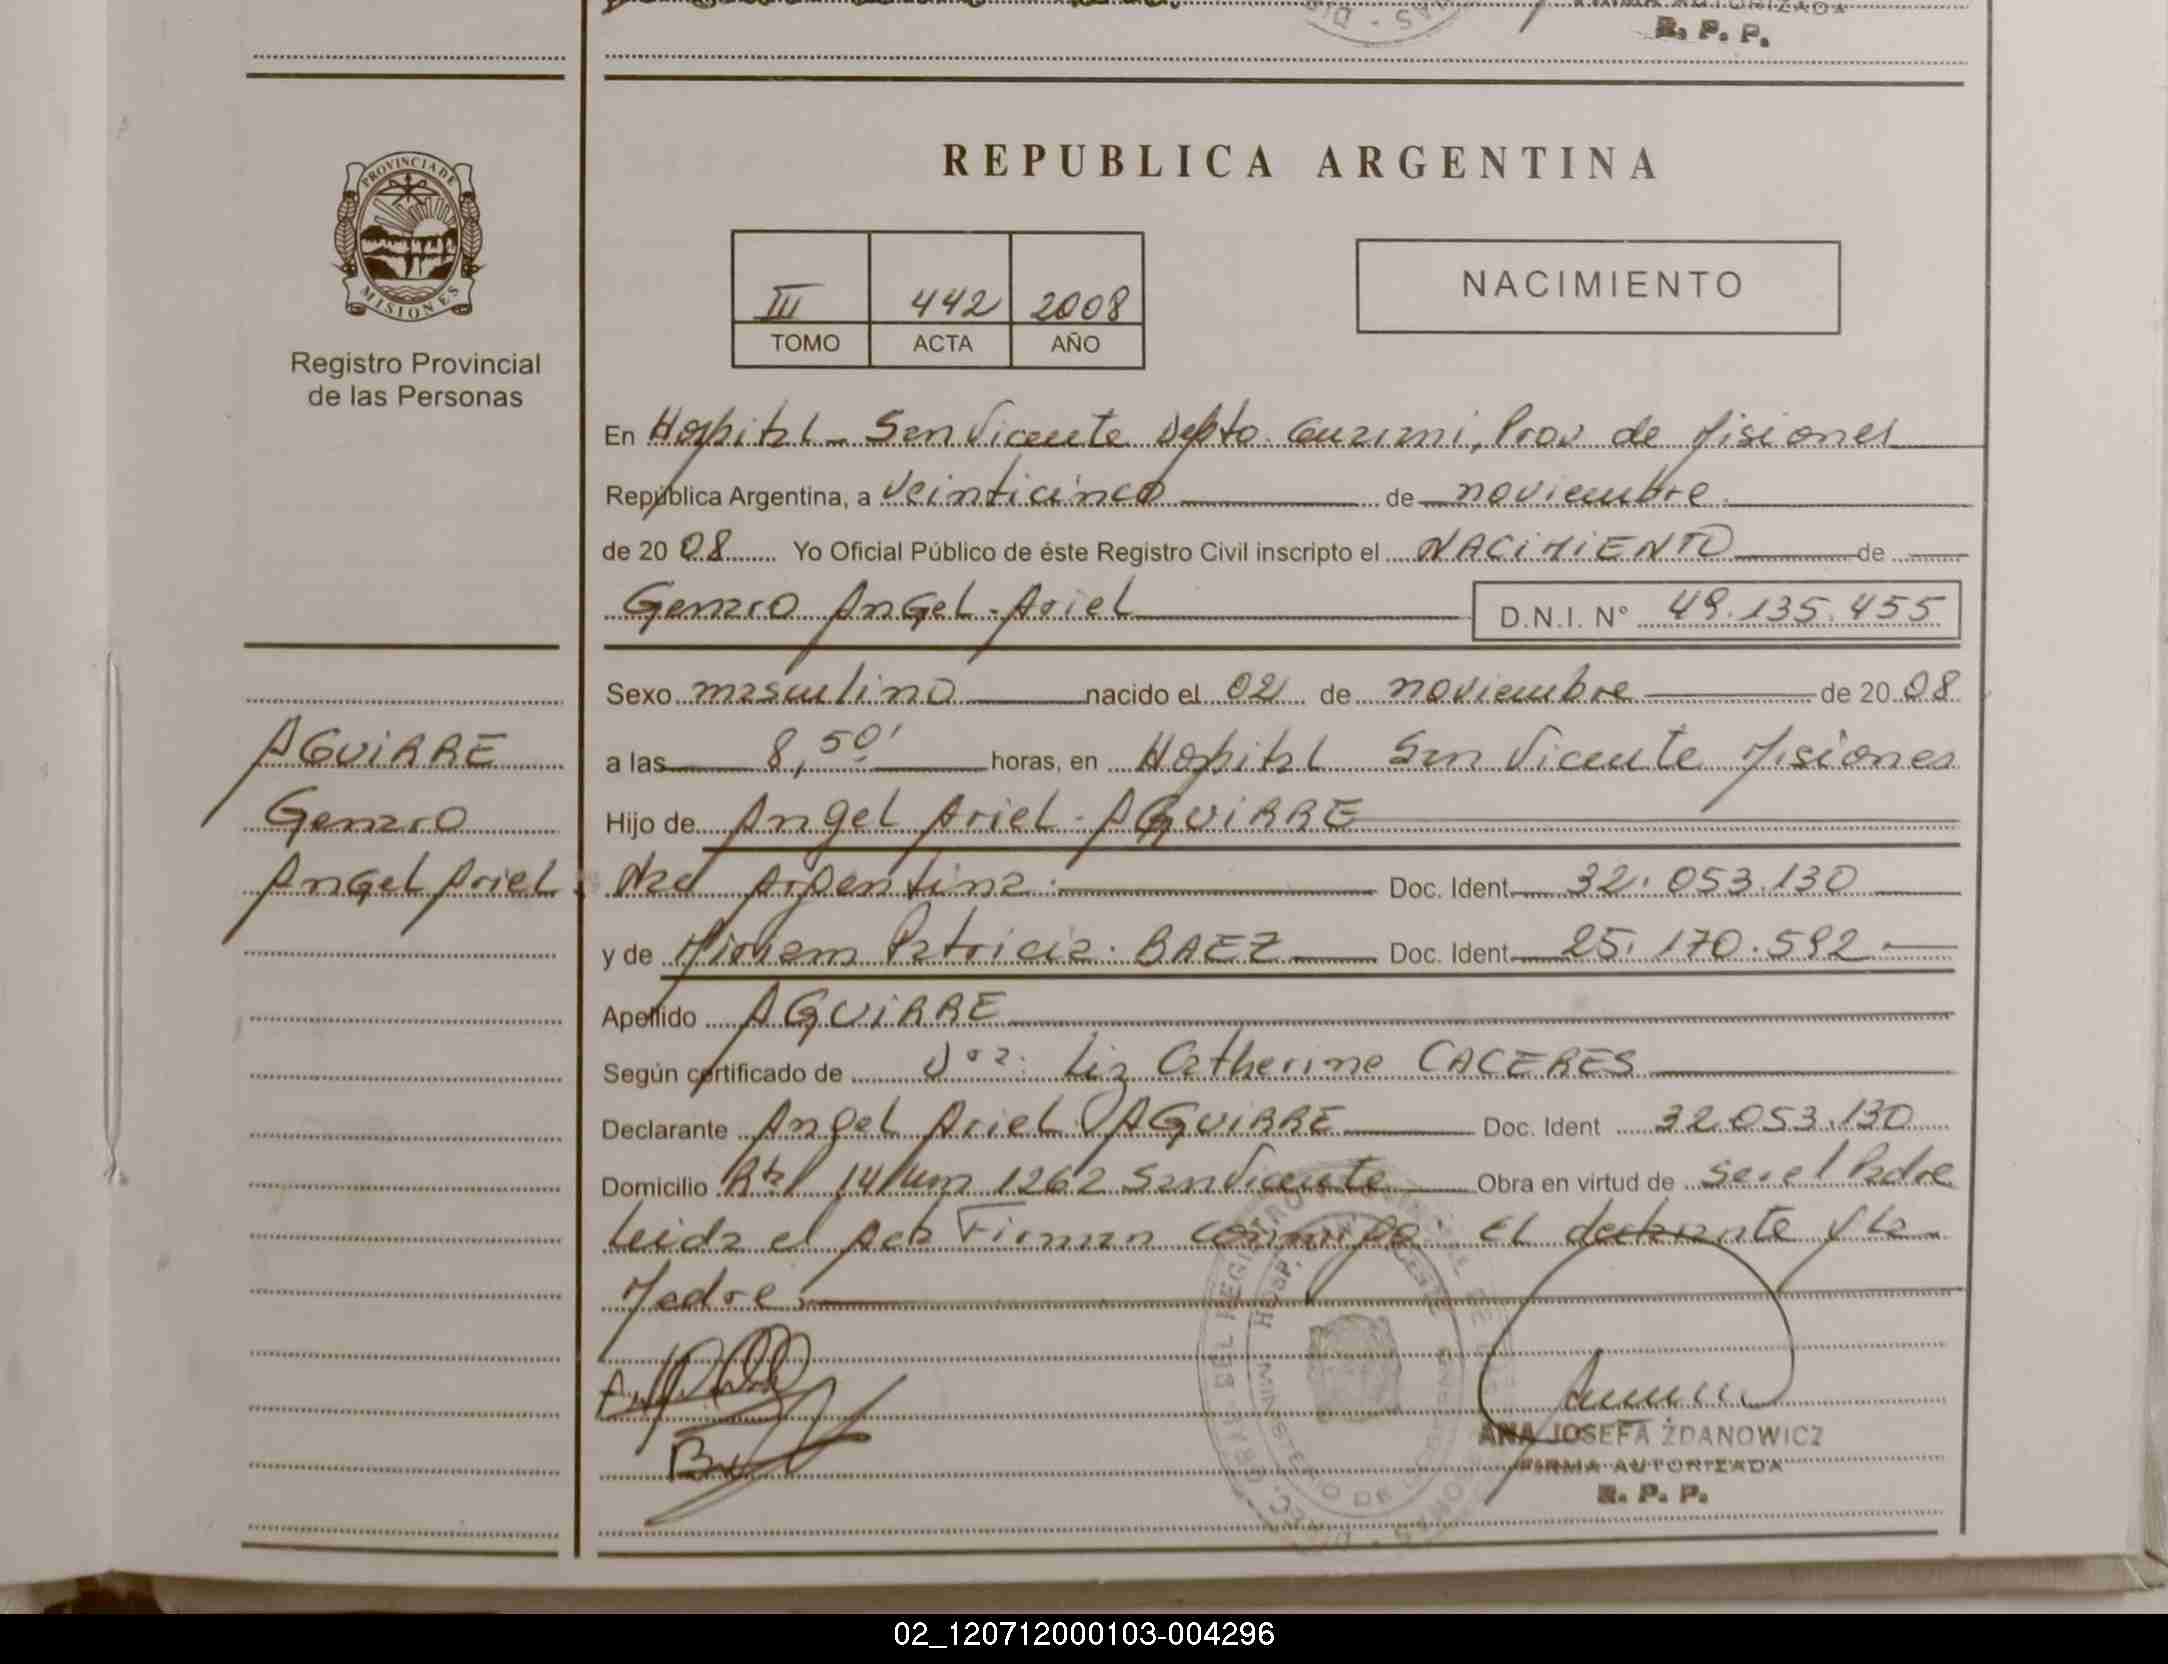 R. P. P.
PROVINCIA DE
MISIONES
Registro Provincial
de las Personas
REPUBLICA ARGENTINA
III 442 2008
TOMO ACTA AÑO
NACIMIENTO
En Hospital - San Vicente Depto. Guarani, Prov de Misiones
República Argentina, a veinticinco de noviembre
de 2008 Yo Oficial Público de éste Registro Civil inscripto el NACIMIENTO de
Genaro Angel Ariel D.N.I. N° 49.135.455
Sexo masculino nacido el 02 de noviembre de 2008
AGUIRRE
Genaro
Angel Ariel
a las 8,50' horas, en Hospital San Vicente Misiones
Hijo de Angel Ariel AGUIRRE
Nac Argentina Doc. Ident 32.053.130
y de Miriam Patricia BAEZ Doc. Ident 25.170.592
Apellido AGUIRRE
Según certificado de Dra. Liz Catherine CACERES
Declarante Angel Ariel AGUIRRE Doc. Ident 32.053.130
Domicilio Rta 14 km 1262 San Vicente Obra en virtud de ser el Padre
Leida el acta Firman conmigo el declarante y la
Madre
ANA JOSEFA ZDANOWICZ
FIRMA AUTORIZADA
R. P. P.
02_120712000103-004296